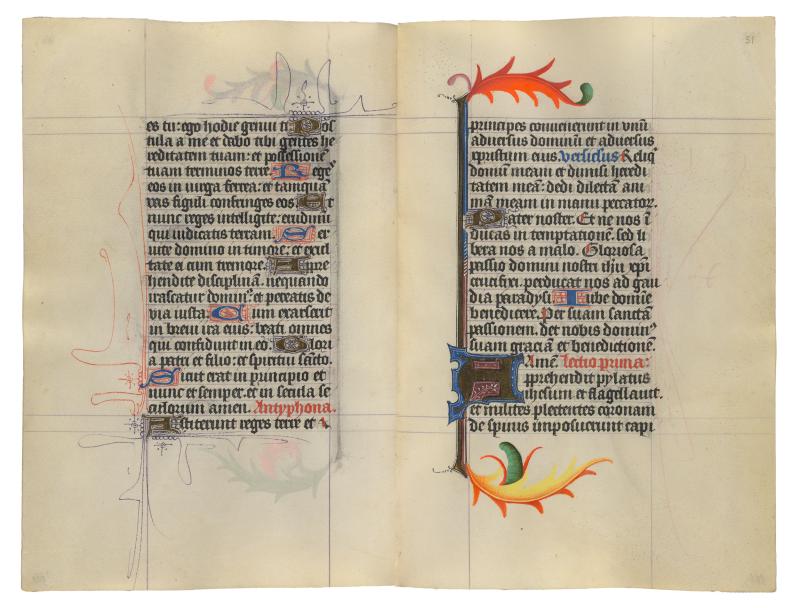 es tu: ego hodie genui te Pos
tula a me et dabo tibi gentes he
reditatem tuam: et possessionē
tuam terminos terre. Reges
eos in uirga ferrea: et tamquā
uas figuli confringes eos. Et
nunc reges intelligite: erudimi
qui iudicatis terram. Ser
uite domino in timore: et exul
tate ei cum tremore. Appre
hendite disciplinā. nequando
irascatur dominꝰ: et pereatis de
via iusta. Cum exarserit
in breui ira eius: beati omnes
qui confidunt in eo. Glori
a patri et filio: et spiritui sācto.
Sicut erat in principio et
nunc et semper. et in secula se
culorum amen. Antyphona.
Astiterunt reges terre et
51
principes conuenerunt in vnū
aduersus dominū et aduersus
xpristum eius. versiclus Reliq
domū meam et dimisi heredi
tatem meā: dedi dilectā ani
mā meam in manu peccator.
Pater noster. Et ne nos ī
ducas in temptationē. sed li
bera nos a malo. Gloriosa
passio domini nostri ihū xp̄i
crucifixi. perducat nos ad gau
dia paradysi. Iube domne
benedicere. Per suam sanctā
passionem. det nobis dominꝰ
suam graciā et benedictionē.
Amē. lectio prima:
Apprehendit pylatus
ihesum et flagellauit.
et milites plectentes coronam
de spinis imposuerunt capi